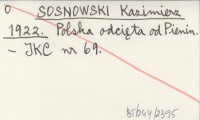 SOSNOWSKI Kazimierz
1922. Polska odcięta od Pienin.
– IKC nr 69.